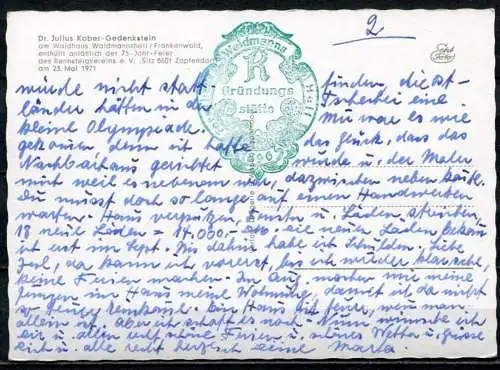 Dr. Julius Kober-Gedenkstein
am Waldhaus Waldmannsheil / Frankenwald,
enthüllt anläßlich der 75-Jahr-Feier
des Rennsteigvereins e. V. (Sitz 8601 Zapfendorf)
am 23. Mai 1971
2
Waldmanns
Heil
R
Gründungs
stätte
würde nicht statt finden die
länder hätten in der eine
kleine Olympiade. Mir war es nie
gekommen, denn ich hatte das Glück, dass das
Nachbarhaus gerichtet wurde u. der Maler
mit weil es nebenan war, dazwischen neben
Du musst doch so lange auf einen Handwerker
warten. Haus verputzen, Fenster u. Läden streichen,
18 neue Läden = 14.000.- die neuen Läden
ich erst im Sept. Bis dahin habe ich Schulden. Liebe
da kann ich vorerst, bis ich wieder
keine Reisen machen. Im Aug. machen mir meine
Jungen im Haus meine Wohnung, damit ich da nicht
so Haus mit wenn man
allein ist. Aber ich schaffe es noch. Nun wünsche ich
dir u. allen recht schöne Ferien u. schönes Wetter u. grüsse
dich u. alle recht herzlich deine Marta